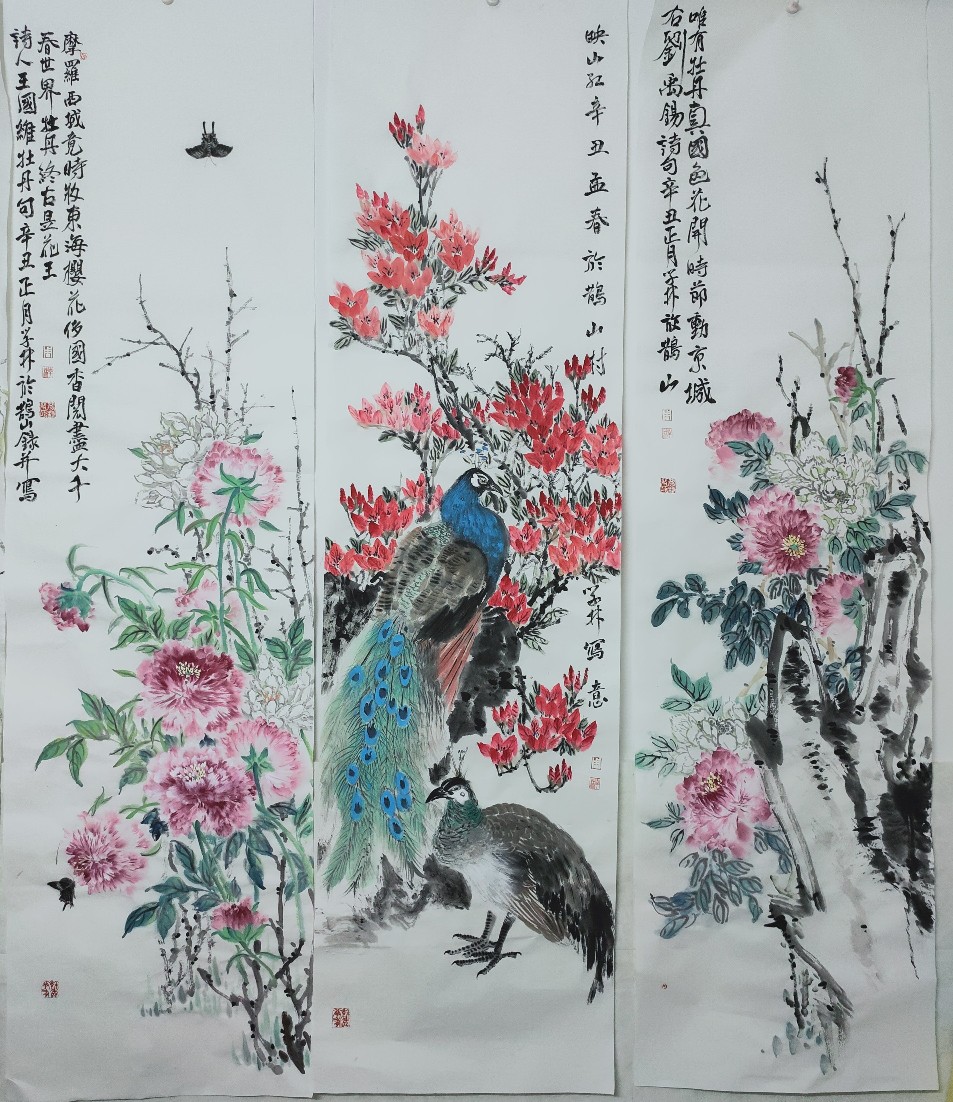 唯有牡丹真國色花開時節動京城
右劉禹錫詩句辛丑正月学林於鵲山
映山红辛丑孟春於鵲山村
学林寫意
摩羅西域竟時妝東海櫻花侈國香閱盡大千
春世界牡丹終古是花王
詩人王國維牡丹句辛丑正月学林於鵲山錄并寫